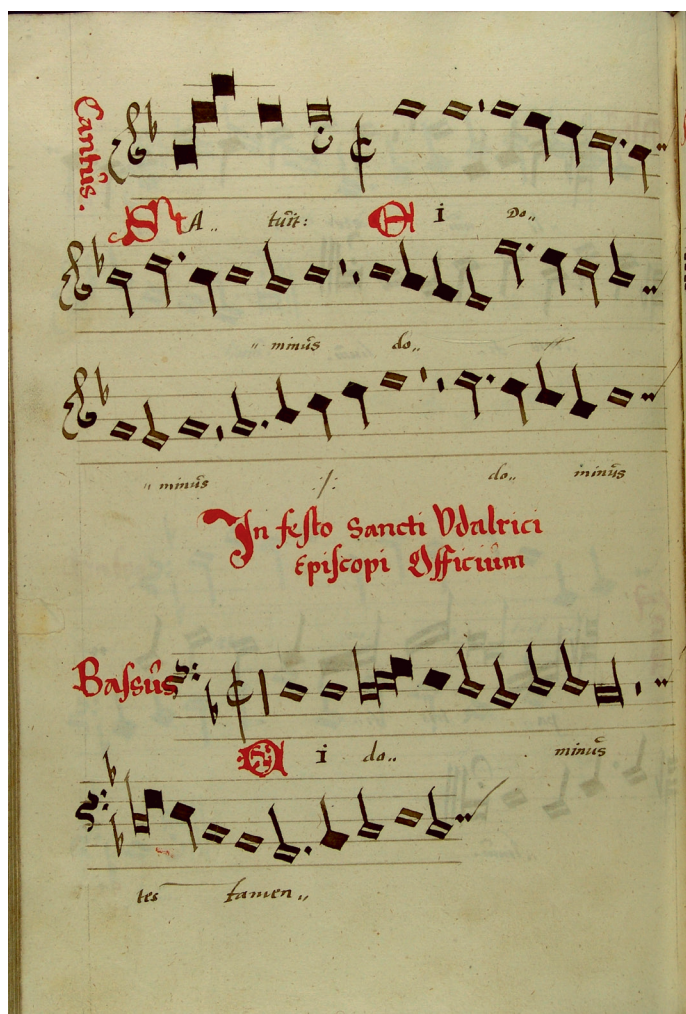 Cantus.
STA.. tuit: EI Do..
" minus do..
" minus :/: do.. minus
In festo Sancti Vdalrici
Episcopi Officium
Bassus
EI do.. minus
tes tamen..